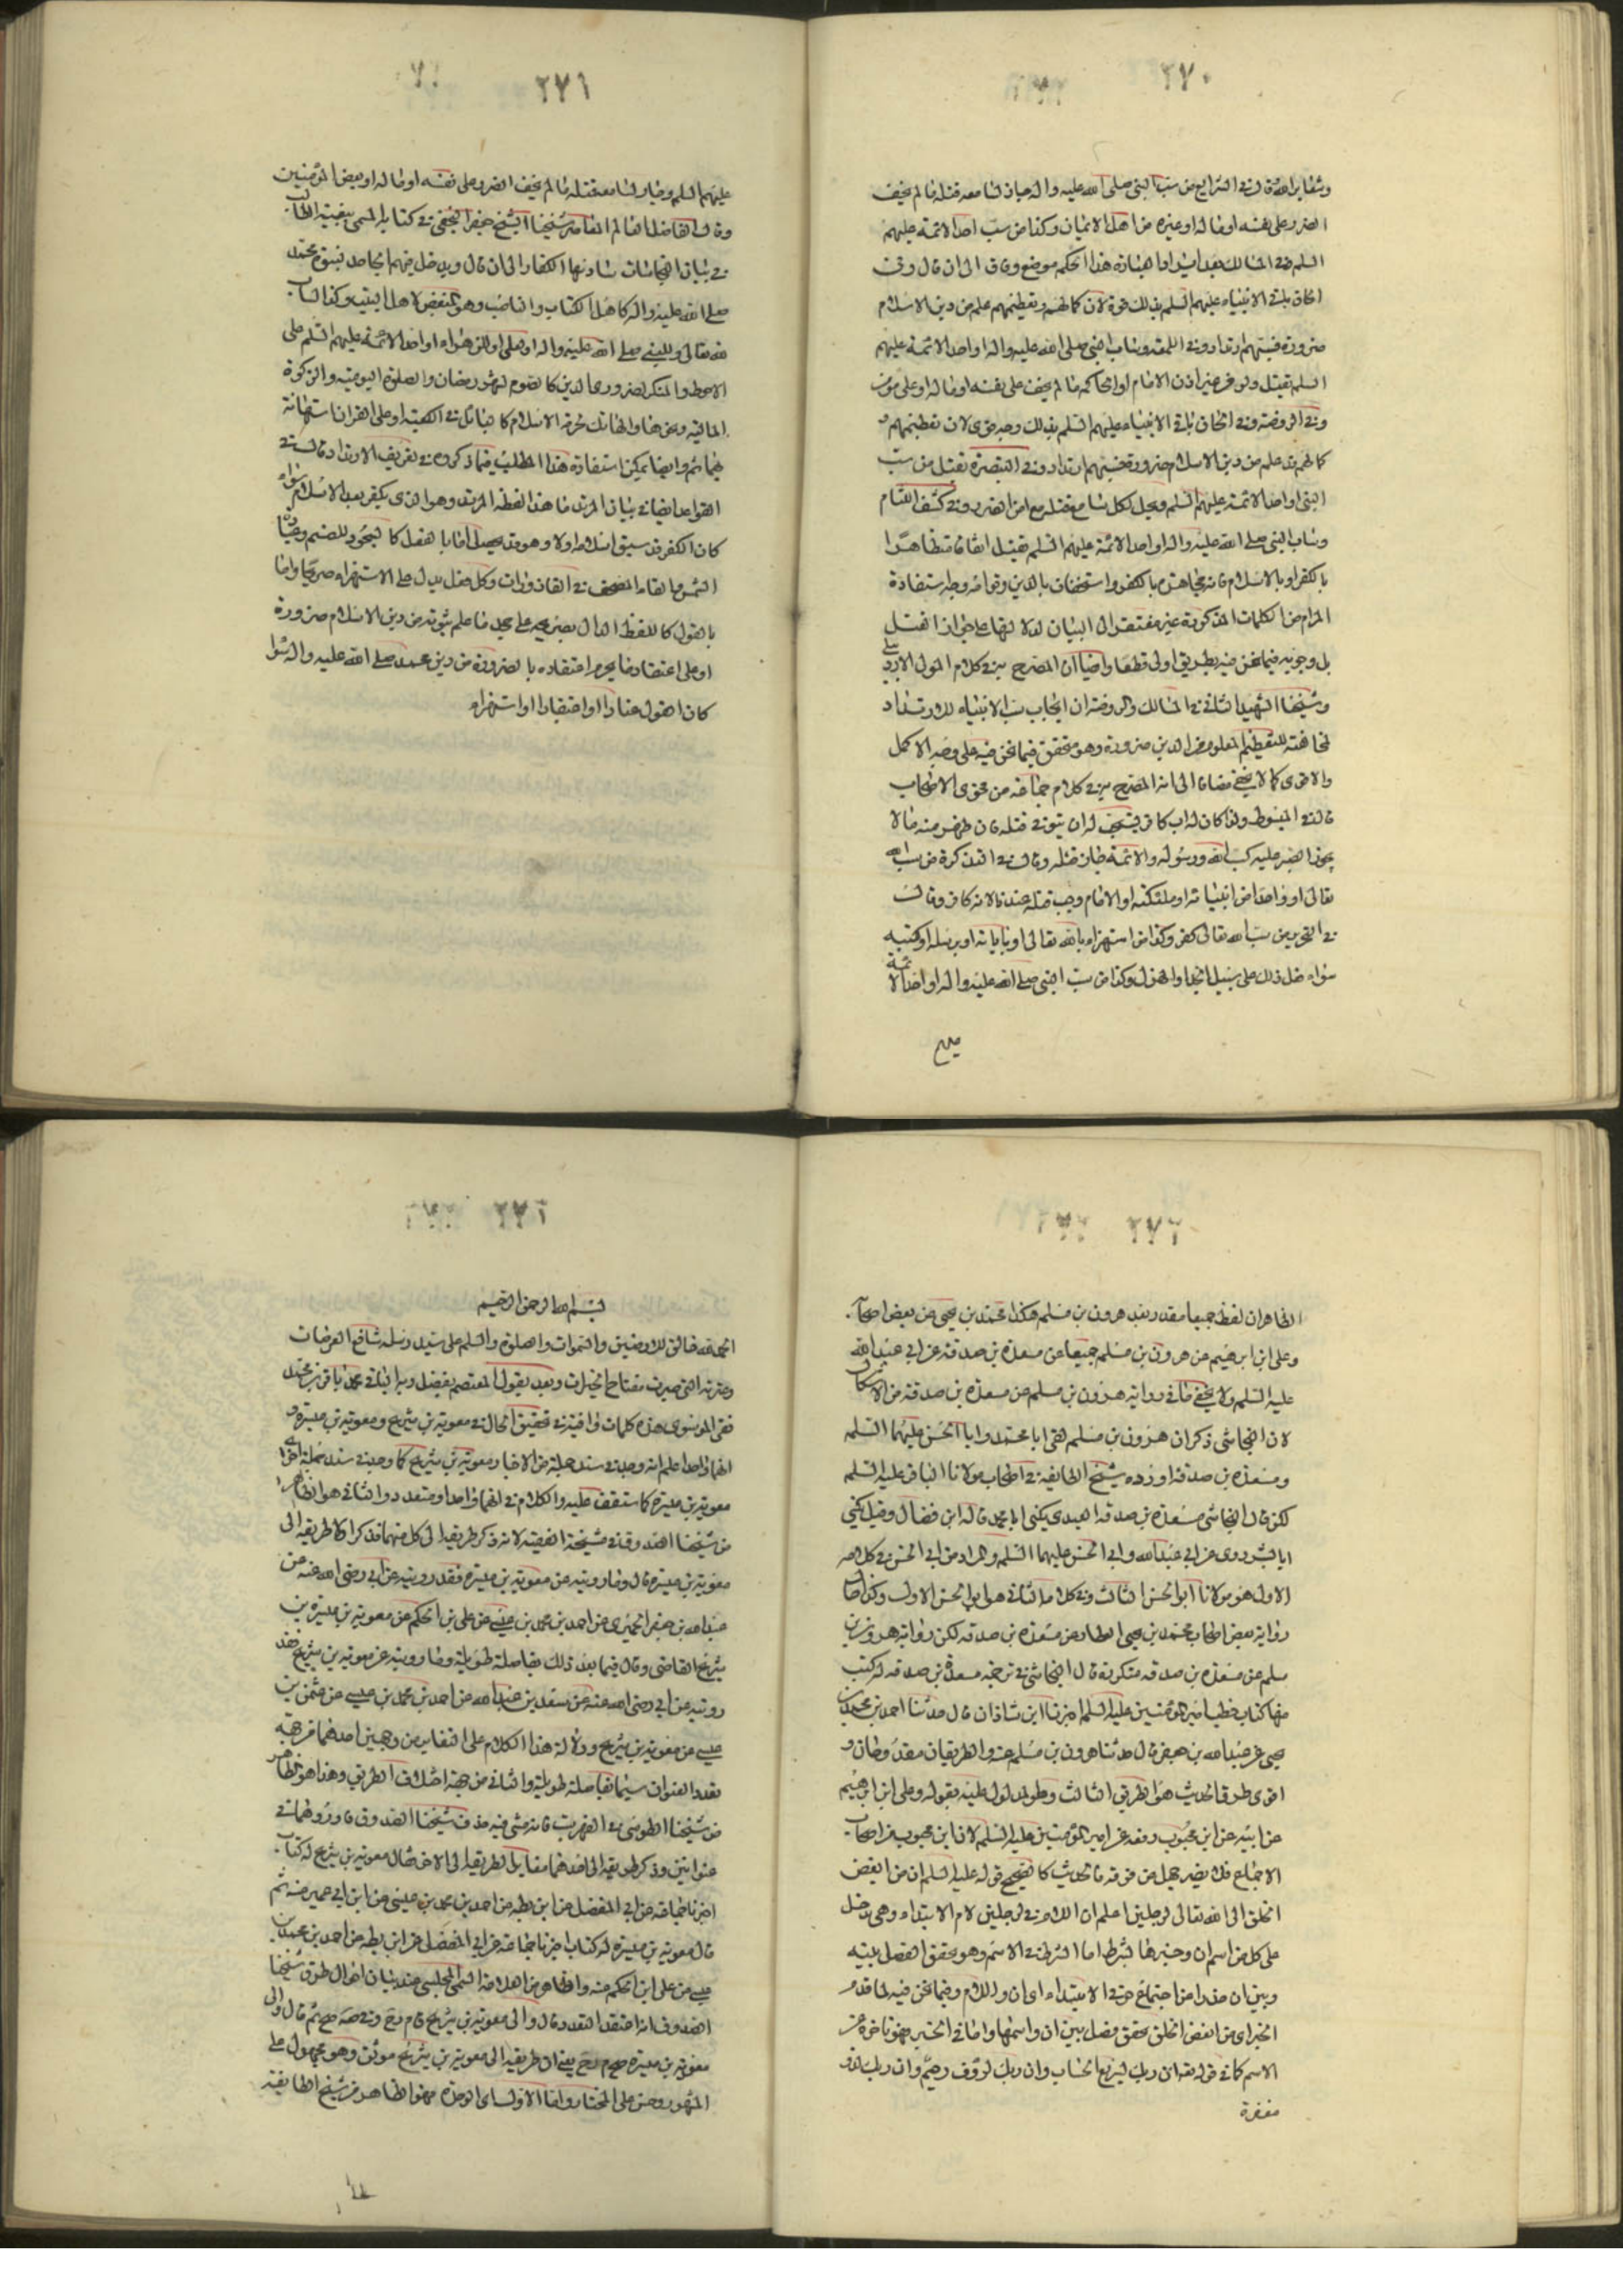 ٢٧٠
وشعائر الله قال في الشرايع من سب النبي صلى الله عليه واله جاز لسامعه قتله ما لم يخف
الضرر على نفسه او ماله او غيره من اهل الايمان وكذا من سب احد الائمة عليهم
السلم في المسالك هذا الحكم موضع وفاق الى ان قال وفي
الحاق باقي الانبياء عليهم السلم بذلك قوة لان كمالهم وتعظيمهم علم من دين الاسلام
ضرورة فسبهم ارتداد وفي اللمعة وساب النبي صلى الله عليه واله او احد الائمة عليهم
السلم يقتل ولو من غير اذن الامام او الحاكم ما لم يخف على نفسه او ماله او على مؤمن
وفي الروضة وفي الحاق باقي الانبياء عليهم السلم بذلك وجه قوى لان تعظيمهم و
كمالهم قد علم من دين الاسلام ضرورة فسبهم ارتداد وفي التبصرة يقتل من سب
النبي او احد الائمة عليهم السلم ويحل لكل سامع قتله مع امن الضرر وفي كشف اللثام
وساب النبي صلى الله عليه واله او احد الائمة عليهم السلم يقتل اتفاقا
بالكفر او بالاسلام فانه مجاهرة بالكفر واستخفاف بالدين وقوامه وجه استفادة
المرام من الكلمات المذكورة غير مفتقر الى البيان لدلالتها على جواز القتل
بل وجوبه فيما نحن فيه بطريق اولى قطعا وايضا ان المصرح به في كلام المولى الاردبيلى
وشيخنا الشهيد الثاني في المسالك والروضة ان ايجاب سب الانبياء للارتداد
لمخالفته للتعظيم المعلوم من الدين ضرورة وهو متحقق فيما نحن فيه على وجه الاكمل
والاقوى كما لا يخفى مضافا الى انه المصرح به في كلام جماعة من فحوى الاصحاب
قال في المبسوط واذا كان له اب كافر يستحب له ان يتوقى قتله فان ظهر منه ما لا
يجوز الصبر عليه كسب الله ورسوله والائمة جاز قتله وقال في التذكرة من سب الله
تعالى او واحدا من انبيائه او ملئكته او الامام وجب قتله عندنا لانه كافر وقال
في التحرير من سب الله تعالى كفر وكذا من استهزء بالله تعالى او باياته او برسله او كتبه
سواء فعل ذلك على سبيل الجد او الهزل وكذا من سب النبي صلى الله عليه واله او احد الائمة
٢٧١
عليهم السلم وجاز لسامعه قتله ما لم يخف الضرر على نفسه او ماله او بعض المؤمنين
وقال الفاضل العالم المعاصر شيخنا الشيخ جعفر النجفي في كتابه المسمى ببغية الطالب
في بيان النجاسات سادسها الكفار الى ان قال ويدخل فيهم الجاحد بنبوة محمد
صلى الله عليه واله كاهل الكتاب والناصب وهو المبغض لاهل البيت وكذا الساب
لله تعالى وللنبي صلى الله عليه واله او احد الائمة عليهم السلم على
الاحوط والمنكر لضروري الدين كالصوم لشهر رمضان والصلوة اليومية والزكوة
المالية ونحوها والهاتك حرمة الاسلام كالبائل في الكعبة او على القران استهانة
بهما وايضا يمكن استفادة هذا المطلب مما ذكروه في تعريف الارتداد قال في
القواعد ايضا في بيان المرتد ما هذا لفظه المرتد وهو الذي يكفر بعد الاسلام سواء
كان الكفر قد سبق اسلامه اولا وهو قد يحصل اما بالفعل كالسجود للصنم وعبادة
الشمس والقاء المصحف في القاذورات وكل فعل يدل على الاستهزاء صريحا واما
بالقول كاللفظ الدال بصريحه على جحد ما علم ثبوته من دين الاسلام ضرورة
او على اعتقاد ما يحرم اعتقاده بالضرورة من دين محمد صلى الله عليه واله سواء
كان القول عنادا او اعتقادا او استهزاء
٢٧٢
الظاهر ان لفظ جميعا مقدر بعد هرون بن مسلم هكذا محمد بن يحيى عن بعض اصحابه
وعلى ابن ابرهيم عن هرون بن مسلم جميعا عن مسعدة بن صدقة عن ابي عبد الله
عليه السلم ولا يخفى ما في رواية هرون بن مسلم عن مسعدة بن صدقة من الاشكال
لان النجاشي ذكر ان هرون بن مسلم لقى ابا محمد وابا الحسن عليهما السلم
ومسعدة بن صدقة اورده شيخ الطايفة في اصحاب مولانا الباقر عليه السلم
لكن قال النجاشي مسعدة بن صدقة العبدي يكنى ابا محمد قاله ابن فضال وقيل يكنى
ابا بشر روى عن ابي عبد الله وابي الحسن عليهما السلم والمراد من ابي الحسن في كلامه
الاول هو مولانا ابو الحسن الثالث وفي كلامه الثاني هو ابو الحسن الاول وكذا حال
رواية بعض اصحاب محمد بن يحيى العطار عن مسعدة بن صدقة لكن رواية هرون بن
مسلم عن مسعدة بن صدقة متكررة قال النجاشي في ترجمة مسعدة بن صدقة له كتب
منها كتاب خطب امير المؤمنين عليه السلم اخبرنا ابن شاذان قال حدثنا احمد بن محمد بن
يحيى عن عبد الله بن جعفر قال حدثنا هرون بن مسلم عنه والطريقان مقدوحان و
اقوى طرق الحديث هو الطريق الثالث وهو المدلول عليه بقوله وعلى ابن ابرهيم
عن ابيه عن ابن محبوب رفعه عن امير المؤمنين عليه السلم لان ابن محبوب من اصحاب
الاجماع فلا يضر جهل من فوقه فالحديث كالصحيح قوله عليه السلم ان من ابغض
الخلق الى الله تعالى لرجلين اعلم ان اللام في لرجلين لام الابتداء وهي تدخل
على كل من اسم ان وخبرها بشرط اما الشرط في الاسم وهو تحقق الفصل بينه
وبين ان حذرا من اجتماع حرفي الابتداء اى ان واللام وفيما نحن فيه لما قدم
الخبر اى من ابغض الخلق تحقق فصل بين ان واسمها واما في الخبر فهو تاخره عن
الاسم كما في قوله تعالى ان ربك لسريع الحساب وان ربك لرؤف رحيم وان ربك لذو
مغفرة
بسم الله الرحمن الرحيم
الحمد لله خالق الارضين والسموات والصلوة والسلم على سيد رسله شافع العرصات
وعترته التي صيرت مفتاح الخيرات وبعد يقول المعتصم بفضل ربه الباقي محمد باقر بن محمد
تقى الموسوى هذه كلمات وافية في تحقيق الحال في معوية بن شريح ومعوية بن ميسرة و
انهما واحد اعلم انه وجد في سند جملة من الاخبار معوية بن شريح كما وجد في سند جملة اخرى
معوية بن ميسرة كما ستقف عليه والكلام في انهما واحد او متعدد والثاني هو الظاهر
من شيخنا الصدوق في مشيخة الفقيه لانه ذكر طريقه الى كل منهما فذكر اولا طريقه الى
معوية بن ميسرة قال وما رويته عن معوية بن ميسرة فقد رويته عن ابي رضى الله عنه عن
عبد الله بن جعفر الحميرى عن احمد بن محمد بن عيسى عن على بن الحكم عن معوية بن ميسرة بن
شريح القاضي وقال فيما بعد ذلك بفاصلة طويلة وما رويته عن معوية بن شريح فقد
رويته عن ابي رضى الله عنه عن سعد بن عبد الله عن احمد بن محمد بن عيسى عن عثمن بن
عيسى عن معوية بن شريح ودلالة هذا الكلام على التغاير من وجهين احدهما من جهة
تعدد العنوان سيما بفاصلة طويلة والثاني من جهة اختلاف الطريق وهذا هو الظاهر
من شيخنا الطوسى في الفهرست فانه مشى فيه مذهب شيخنا الصدوق فاورد لهما في
عنوانين وذكر طريقه الى احدهما مقابل طريقه الى الاخر فقال معوية بن شريح له كتاب
اخبرنا جماعة عن ابي المفضل عن ابن بطة عن احمد بن محمد بن عيسى عن ابن ابي عمير عنه ثم
قال معوية بن ميسرة له كتاب اخبرنا جماعة عن ابي المفضل عن ابن بطة عن احمد بن محمد بن
عيسى عن على ابن الحكم عنه والظاهر من العلامة السمى المجلسى عند بيان احوال طرق شيخنا
الصدوق انه اعتقد التعدد قال والى معوية بن شريح ثم قال والى
معوية بن ميسرة يعني ان طريقه الى معوية بن شريح موثق وهو مجهول على
المشهور وحسن على المختار واما الاول اى الوحدة فهو الظاهر من شيخ الطايفة